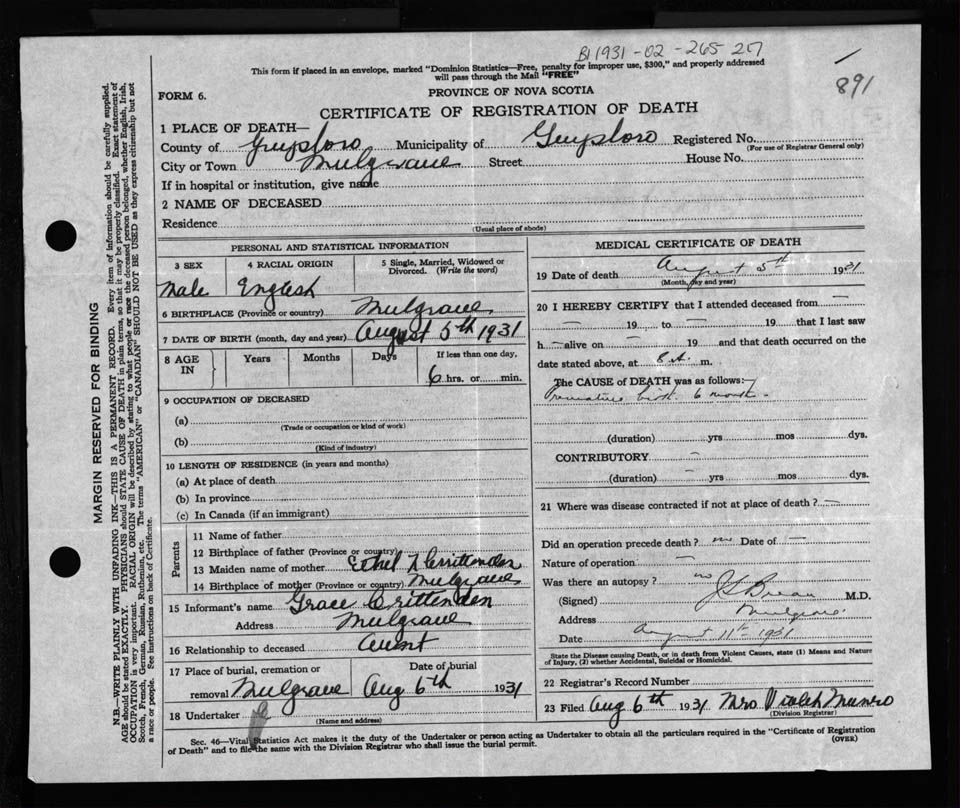 B1931-02-265217
891
This form if placed in an envelope, marked "Dominion Statistics—Free, penalty for improper use, $300," and properly addressed
will pass through the Mail "FREE"
FORM 6.
PROVINCE OF NOVA SCOTIA
CERTIFICATE OF REGISTRATION OF DEATH
1 PLACE OF DEATH—
County of Guysboro Municipality of Guysboro Registered No.
(For use of Registrar General only)
City or Town Mulgrave Street House No.
If in hospital or institution, give name
2 NAME OF DECEASED
Residence
(Usual place of abode)
PERSONAL AND STATISTICAL INFORMATION
3 SEX
4 RACIAL ORIGIN
5 Single, Married, Widowed or Divorced. (Write the word)
Male English
6 BIRTHPLACE (Province or country) Mulgrave
7 DATE OF BIRTH (month, day and year) August 5th 1931
8 AGE IN
Years Months Days If less than one day,
6 hrs. or min.
9 OCCUPATION OF DECEASED
(a)
(Trade or occupation or kind of work)
(b)
(Kind of industry)
10 LENGTH OF RESIDENCE (in years and months)
(a) At place of death
(b) In province
(c) In Canada (if an immigrant)
Parents
11 Name of father
12 Birthplace of father (Province or country)
13 Maiden name of mother Ethel Crittenden
14 Birthplace of mother (Province or country) Mulgrave
15 Informant's name Grace Crittenden
Address Mulgrave
16 Relationship to deceased Aunt
17 Place of burial, cremation or
Date of burial
removal Mulgrave Aug 6th 1931
18 Undertaker
(Name and address)
MEDICAL CERTIFICATE OF DEATH
19 Date of death August 5th 1931
(Month, day and year)
20 I HEREBY CERTIFY that I attended deceased from —
— 19 to — 19 that I last saw
h — alive on — 19 and that death occurred on the
date stated above, at 8 A. m.
The CAUSE of DEATH was as follows:—
Premature birth 6 month -
(duration) yrs mos dys.
CONTRIBUTORY —
(duration) — yrs mos dys.
21 Where was disease contracted if not at place of death? —
Did an operation precede death? no Date of —
Nature of operation —
Was there an autopsy? no
(Signed) M.D.
Address Mulgrave
Date August 11th 1931
State the Disease causing Death, or in death from Violent Causes, state (1) Means and Nature
of Injury, (2) whether Accidental, Suicidal or Homicidal.
22 Registrar's Record Number
23 Filed Aug 6th 1931 Mrs Munro
(Division Registrar)
Sec. 46—Vital Statistics Act makes it the duty of the Undertaker or person acting as Undertaker to obtain all the particulars required in the "Certificate of Registration
of Death" and to file the same with the Division Registrar who shall issue the burial permit.
(OVER)
MARGIN RESERVED FOR BINDING
N.B.—WRITE PLAINLY WITH UNFADING INK—THIS IS A PERMANENT RECORD. Every item of information should be carefully supplied.
AGE should be stated EXACTLY. PHYSICIANS should STATE CAUSE OF DEATH in plain terms, so that it may be properly classified. Exact statement of
OCCUPATION is very important. RACIAL ORIGIN will be described by stating to what people or race the deceased person belonged, whether English, Irish,
Scotch, French, German, Russian, Ruthenian, etc. The terms "AMERICAN" or "CANADIAN" SHOULD NOT BE USED as they express citizenship but not
a race or people. See instructions on back of Certificate.